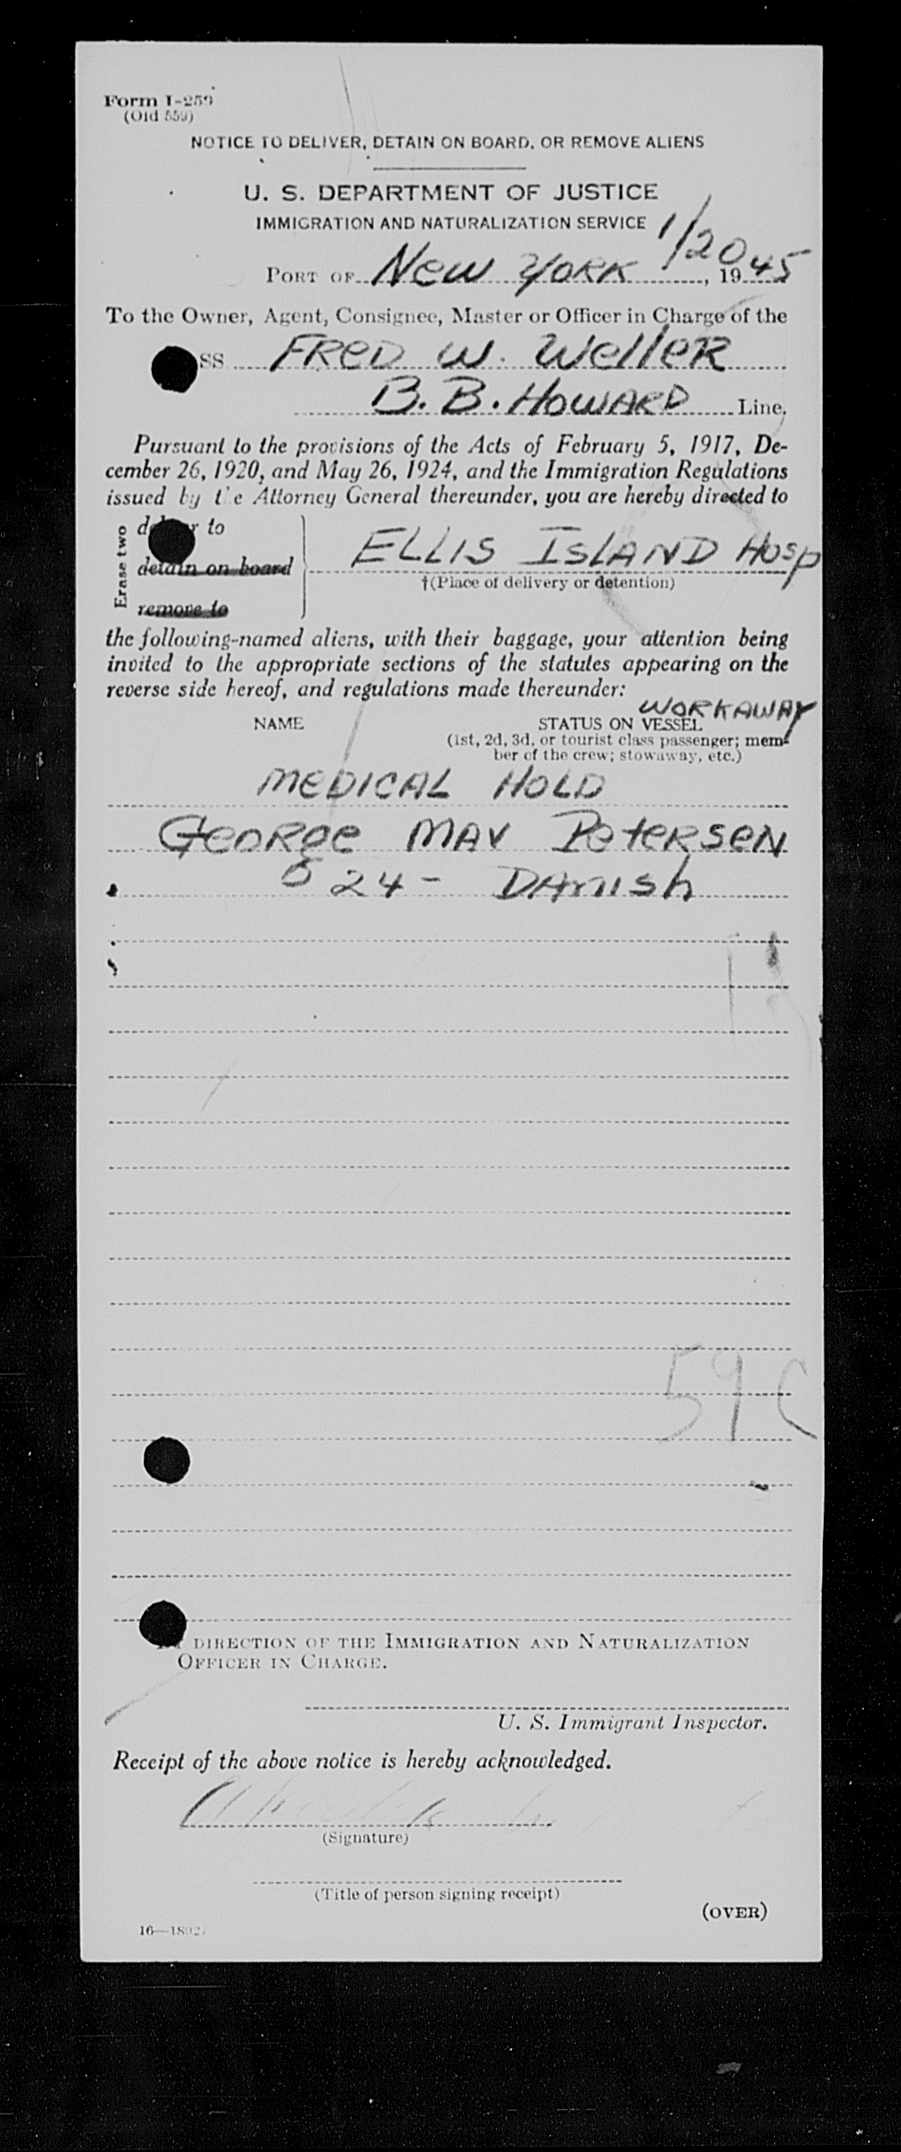 Form I-259
(Old 559)
NOTICE TO DELIVER, DETAIN ON BOARD, OR REMOVE ALIENS
U. S. DEPARTMENT OF JUSTICE
IMMIGRATION AND NATURALIZATION SERVICE
PORT OF New York 1/20, 1945
To the Owner, Agent, Consignee, Master or Officer in Charge of the
SS FRED W. WelleR
B. B. HOWARD Line.
Pursuant to the provisions of the Acts of February 5, 1917, De-
cember 26, 1920, and May 26, 1924, and the Immigration Regulations
issued by the Attorney General thereunder, you are hereby directed to
Erase two
deliver to
detain on board
remove to
ELLIS ISLAND Hosp
†(Place of delivery or detention)
the following-named aliens, with their baggage, your attention being
invited to the appropriate sections of the statutes appearing on the
reverse side hereof, and regulations made thereunder:
WORKAWAY
NAME STATUS ON VESSEL
(1st, 2d, 3d, or tourist class passenger; mem-
ber of the crew; stowaway, etc.)
MEDICAL HOLD
GeoRge MAV PeteRSeN
24 - DANISh
59 C
DIRECTION OF THE IMMIGRATION AND NATURALIZATION
OFFICER IN CHARGE.
U. S. Immigrant Inspector.
Receipt of the above notice is hereby acknowledged.
(Signature)
(Title of person signing receipt)
(OVER)